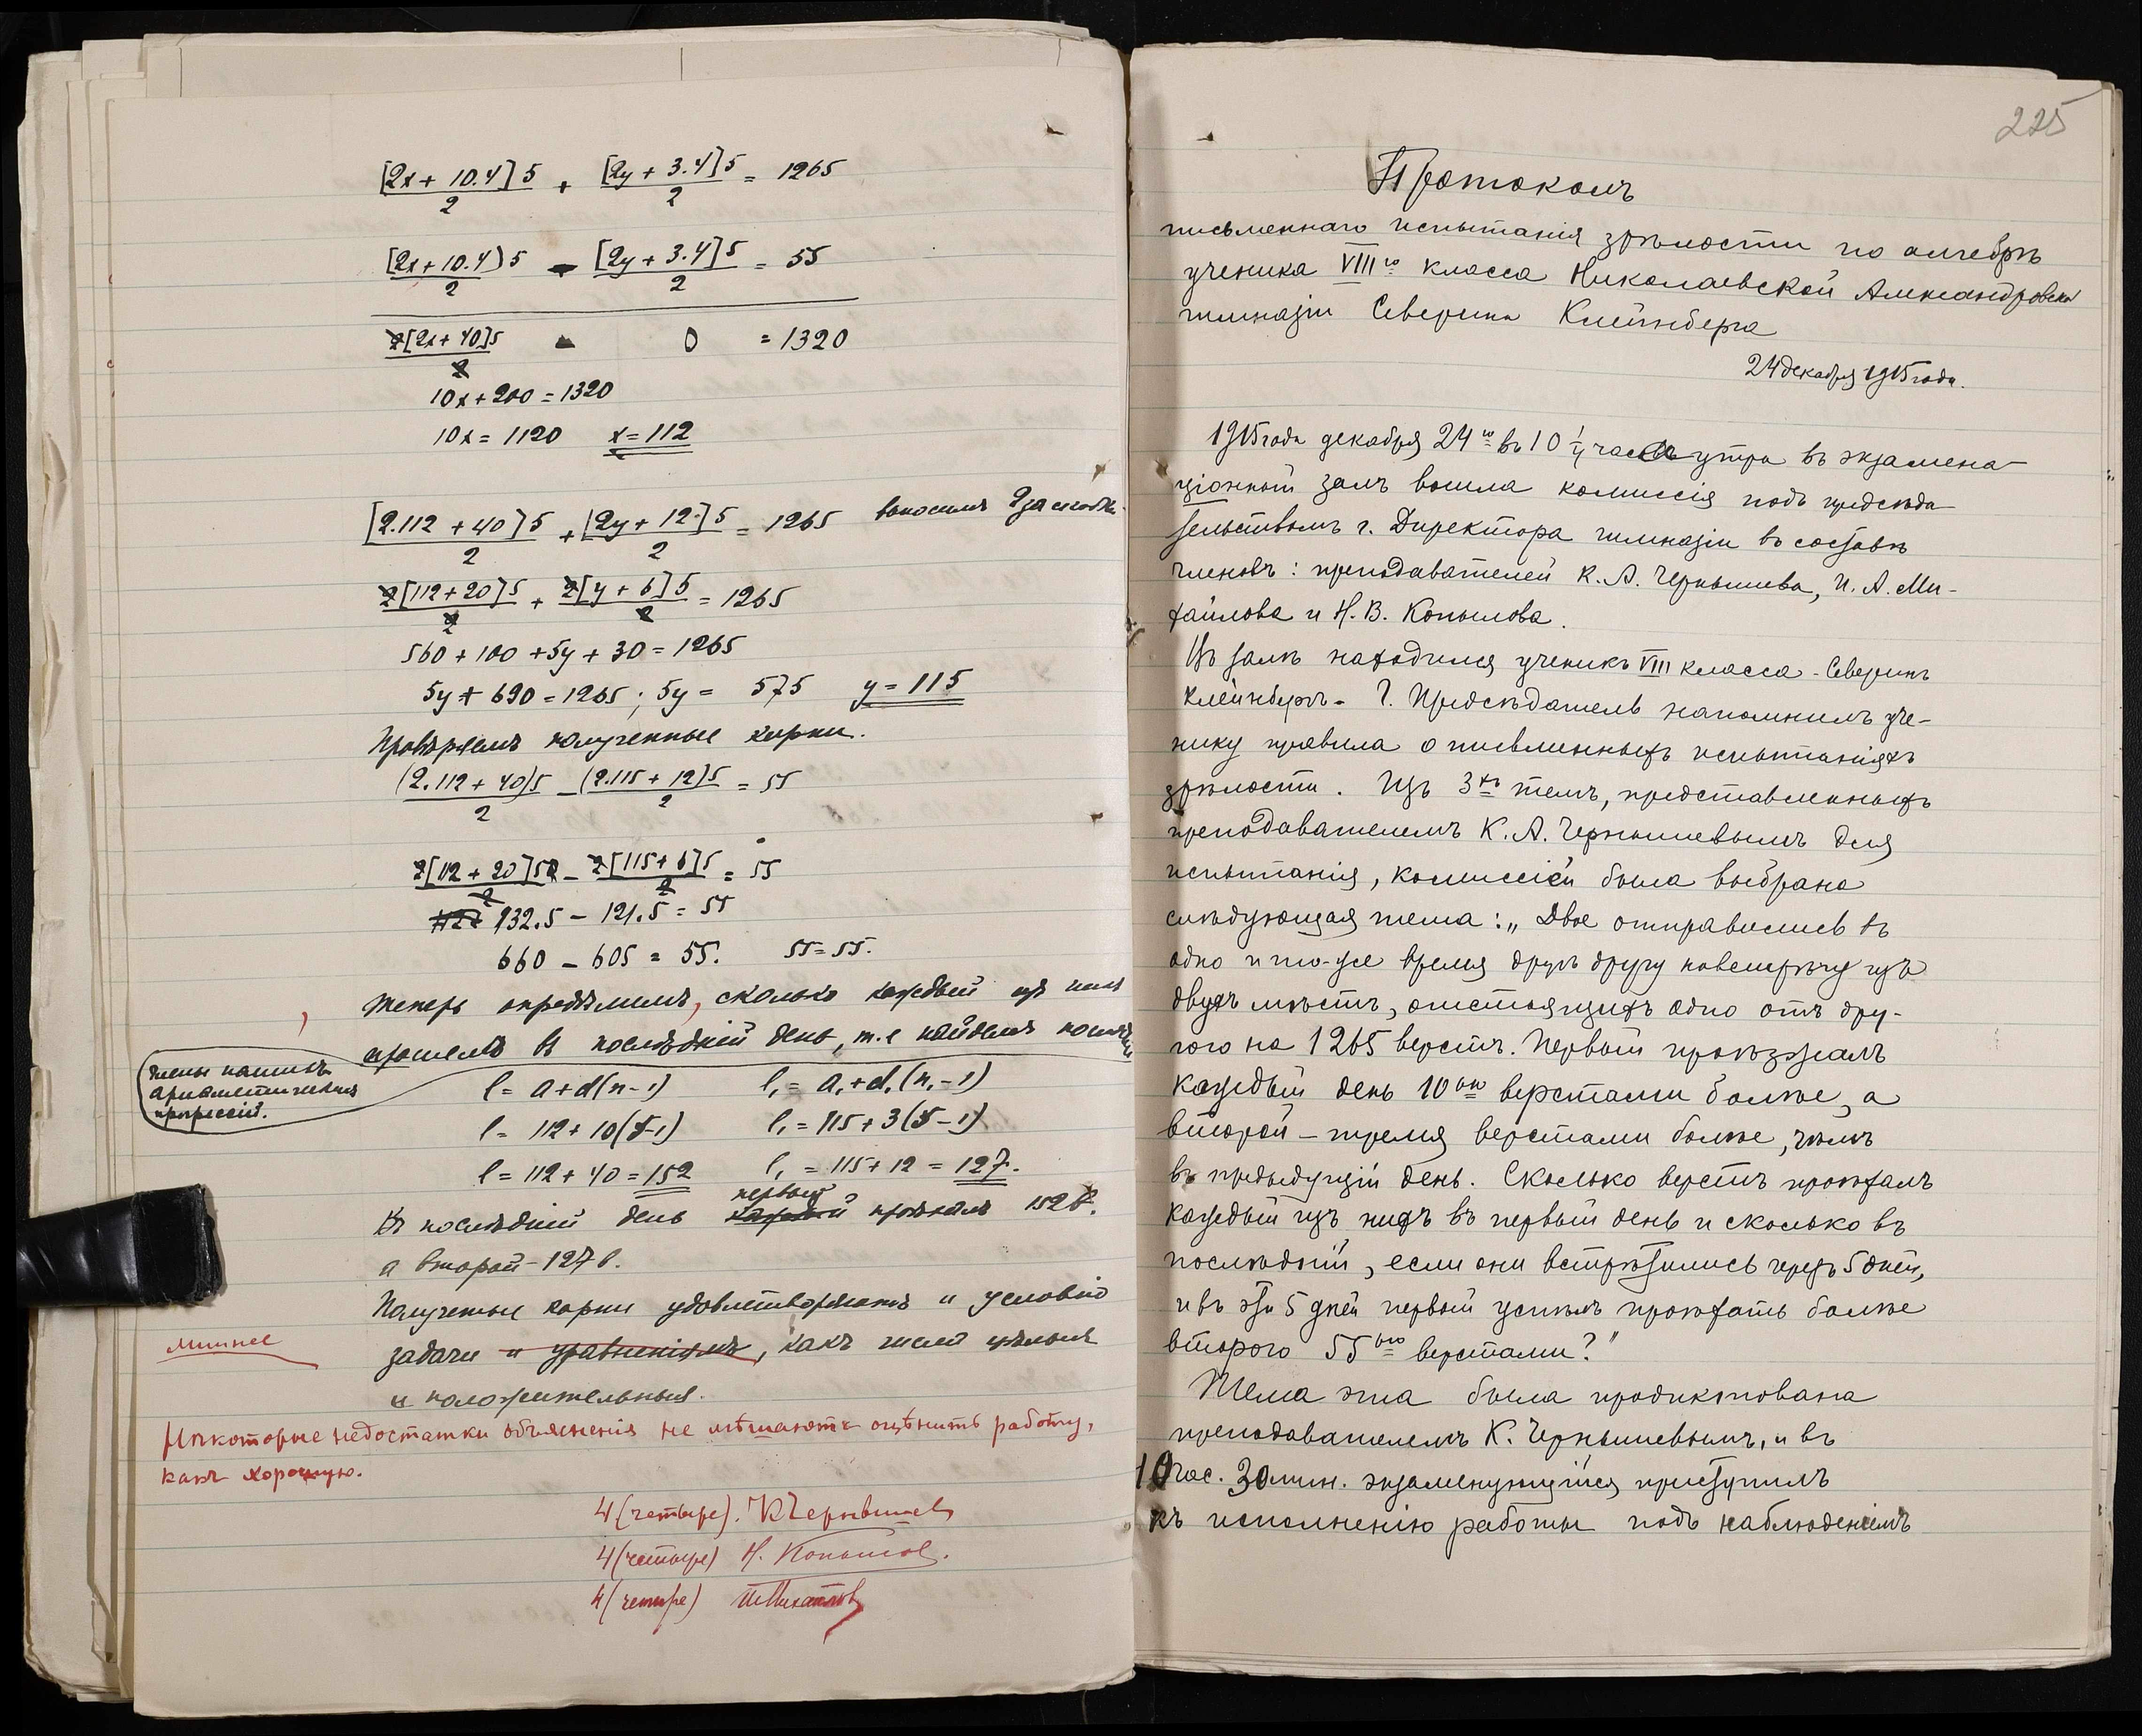 [2x + 10.4]5/2 + [2y + 3.4]5/2 = 1265
[2x + 10.4)5/2 - [2y + 3.4]5/2 = 55
2[2x + 40]5/2 0 = 1320
10x + 200 = 1320
10x = 1120 x = 112
[2.112 + 40]5/2 + [2y + 12.]5/2 = 1265 выносимъ 2 за скобки
2[112 + 20]5/2 + 2[y + 6]5/2 = 1265
560 + 100 + 5y + 30 = 1265
5y + 690 = 1265; 5y = 575 y = 115
Провѣряемъ полученные корни.
(2.112 + 40)5/2 - (2.115 + 12)5/2 = 55
2[112 + 20]5/2 - 2[115 + 6]5/2 = 55
132.5 - 121.5 = 55
660 - 605 = 55. 55 = 55.
Теперь опредѣлимъ, сколько каждый изъ нихъ
прошелъ въ послѣдній день, т.е найдемъ послѣдн
члены нашихъ
ариѳметическихъ
прогрессій.
l = a + d(n - 1) l₁ = a₁ + d₁(n₁ - 1)
l = 112 + 10(5-1) l₁ = 115 + 3(5-1)
l = 112 + 40 = 152 l₁ = 115 + 12 = 127.
Въ послѣдній день первый проѣхалъ 152 в.
а второй - 127 в.
Полученные корни удовлетворяютъ и условію
задачи и уравненіямъ, какъ числа цѣлыя
и положительныя.
лишнее
Нѣкоторые недостатки объясненія не мѣшаютъ оцѣнить работу,
какъ хорошую.
4 (четыре). КЧернышев
4 (четыре) Н. Копылов.
4 (четыре) Михайлов
225
Протоколъ
письменнаго испытанія зрѣлости по алгебрѣ
ученика VIII го класса Николаевской Александровской
гимназіи Северина Клейнберга
24 декабря 1915 года.
1915 года декабря 24 го въ 10 1/4 часа утра въ экзамена-
ціонный залъ вошла комиссія подъ предсѣда
тельствомъ г. Директора гимназіи въ составѣ
членовъ: преподавателей К. А. Чернышева, И. А. Ми-
хайлова и Н. В. Копылова.
Въ залѣ находился ученикъ VIII класса - Северинъ
Клейнбергъ. Г. Предсѣдатель напомнилъ уче-
нику правила о письменныхъ испытаніяхъ
зрѣлости. Изъ 3 хъ темъ, представленныхъ
преподавателемъ К. А. Чернышевымъ для
испытанія, комиссіей была выбрана
слѣдующая тема: „Двое отправились въ
одно и то-же время другъ другу навстрѣчу изъ
двухъ мѣстъ, отстоящихъ одно отъ дру-
гого на 1265 верстъ. Первый проѣзжалъ
каждый день 10 ью верстами болѣе, а
второй - тремя верстами болѣе, чѣмъ
въ предыдущій день. Сколько верстъ проѣхалъ
каждый изъ нихъ въ первый день и сколько въ
послѣдній, если они встрѣтились черезъ 5 дней,
и въ эти 5 дней первый успѣлъ проѣхать болѣе
второго 55 ью верстами?"
Тема эта была продиктована
преподавателемъ К. Чернышевымъ, и въ
10 час. 30 мин. экзаменующійся приступилъ
къ исполненію работы подъ наблюденіемъ